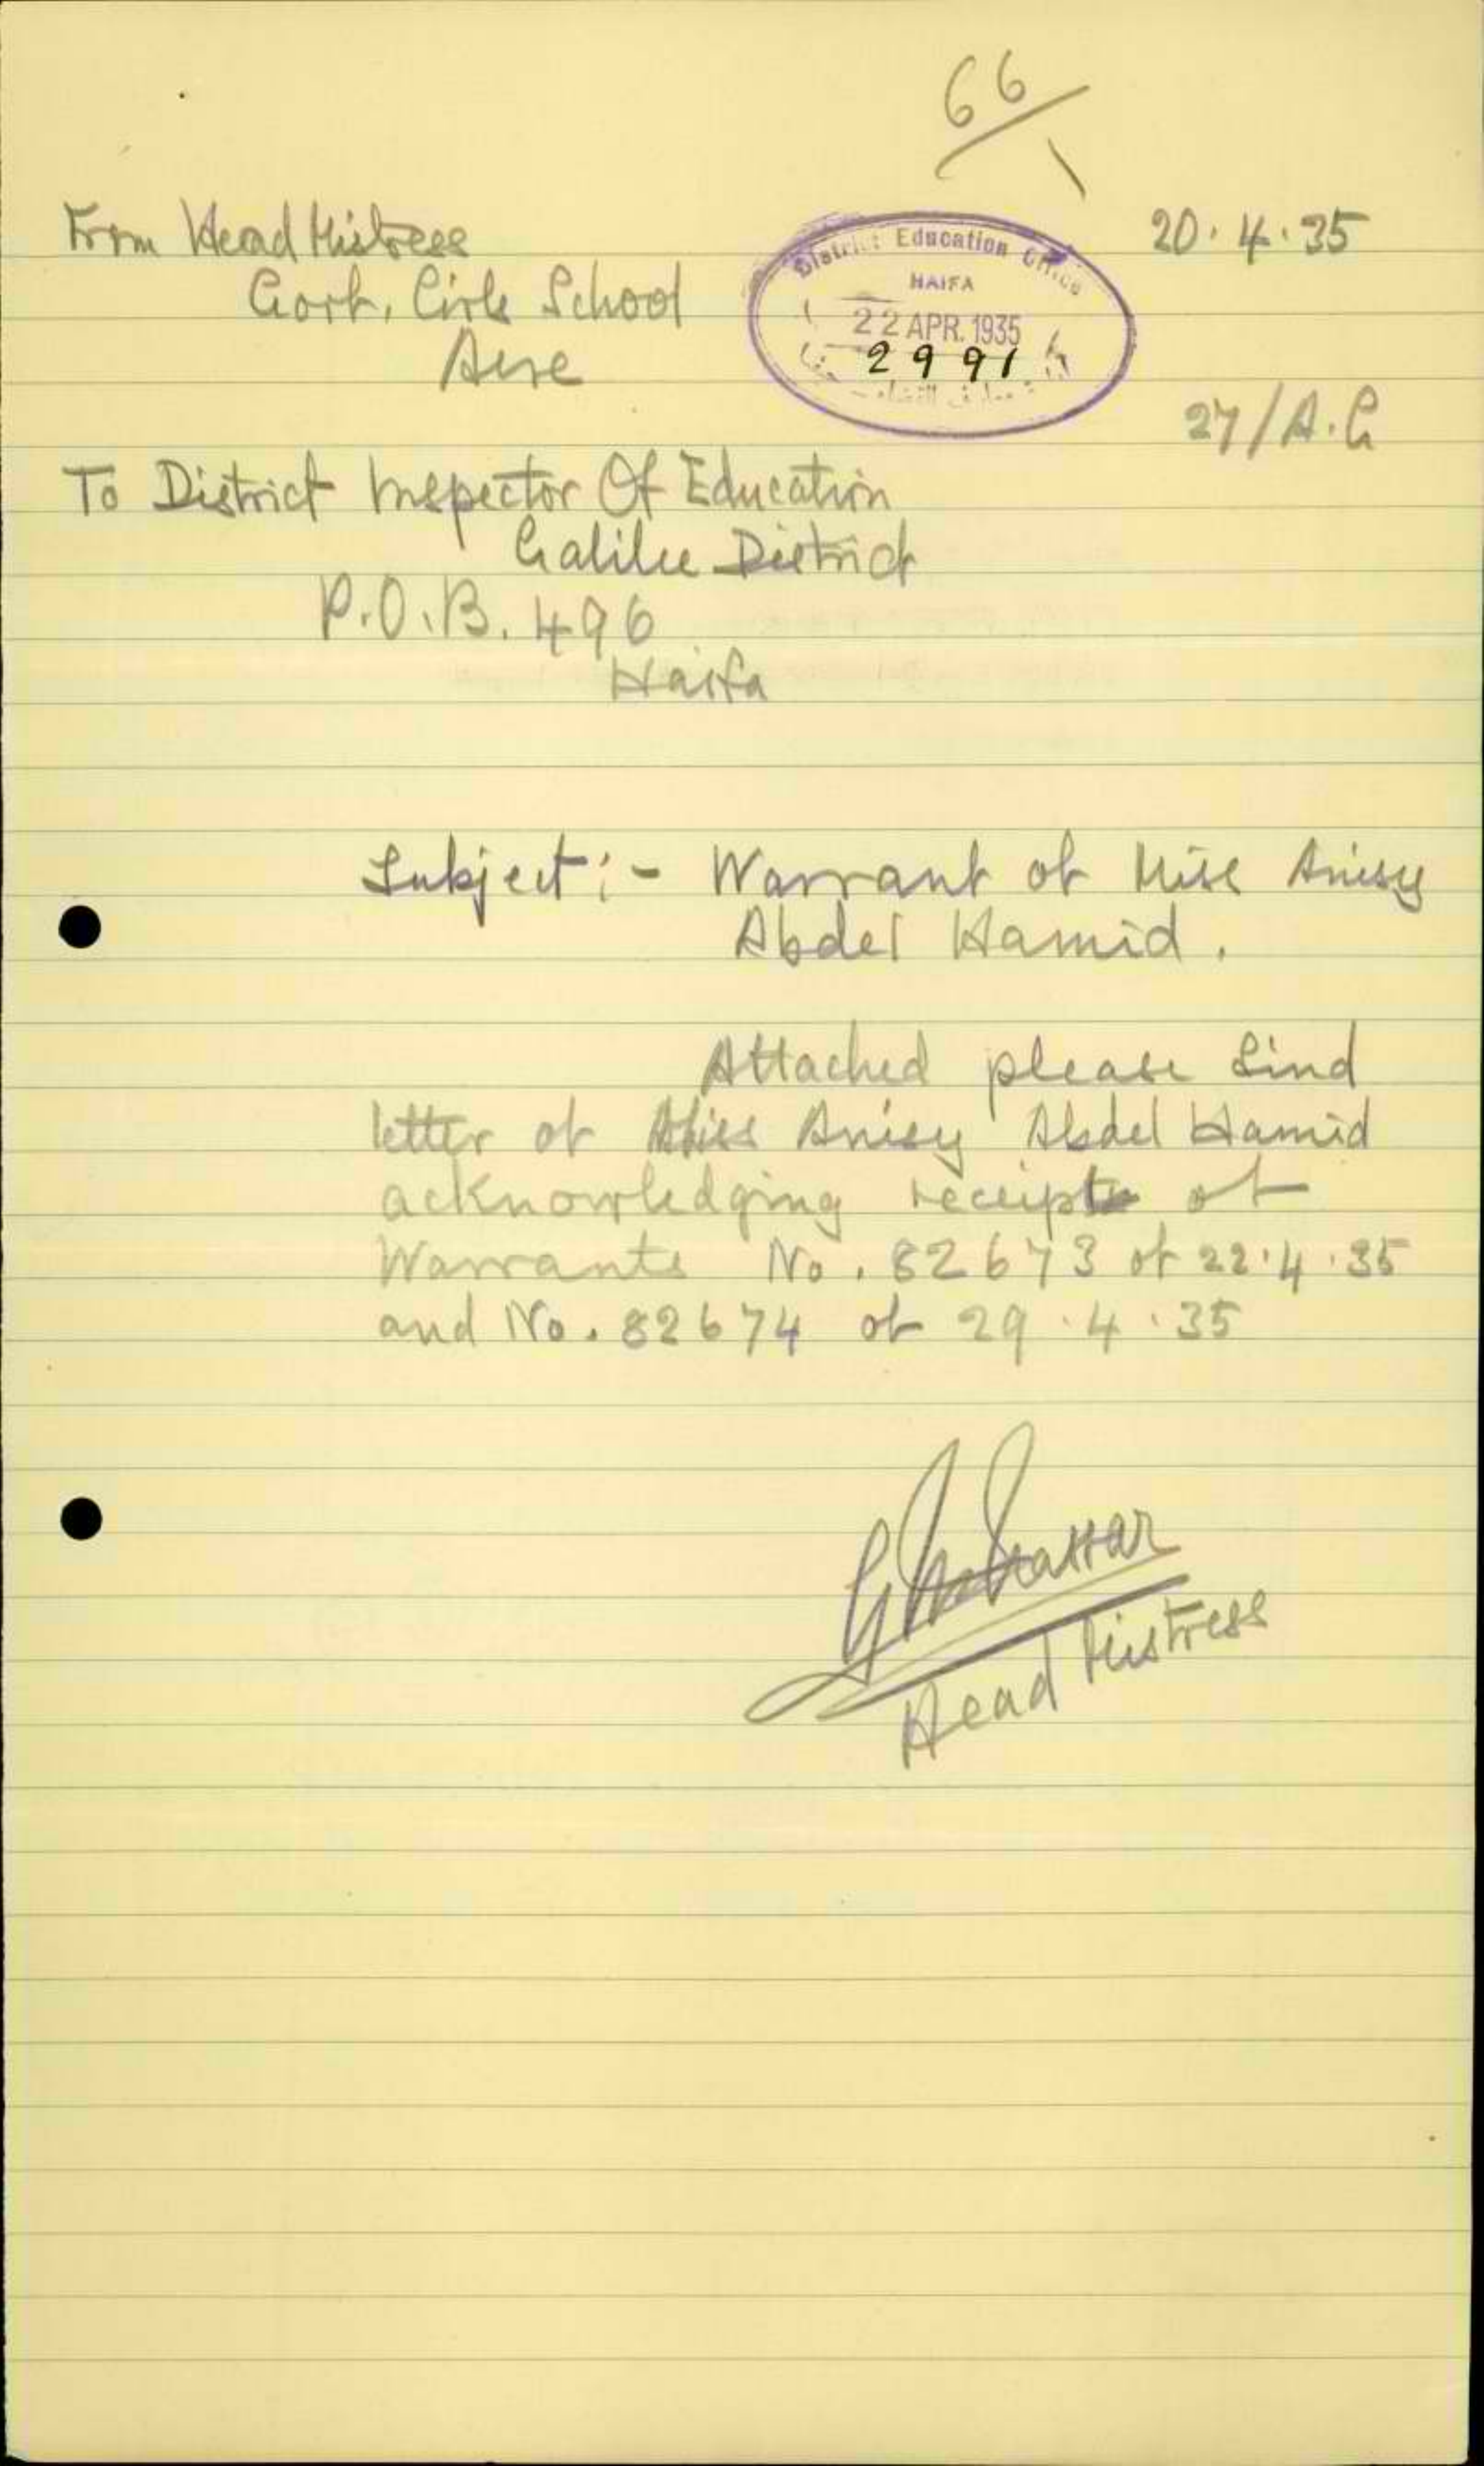 66
1
From Head Mistress
20.4.35
Govt. Girls School
Acre
District Education Office
HAIFA
22 APR. 1935
2991
27/A.G
To District Inspector Of Education
Galilee District
P.O.B. 496
Haifa
Subject:- Warrant of Miss Anisy
Abdel Hamid.
Attached please find
letter of Miss Anisy Abdel Hamid
acknowledging receipt of
Warrants No. 82673 of 22.4.35
and No. 82674 of 29.4.35
Head Mistress